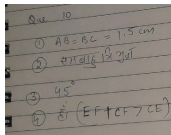 Que 10
① AB = BC = 1.5 cm
② समबाहु त्रिभुज
③ 45°
④ हाँ (EF + CF > CE)